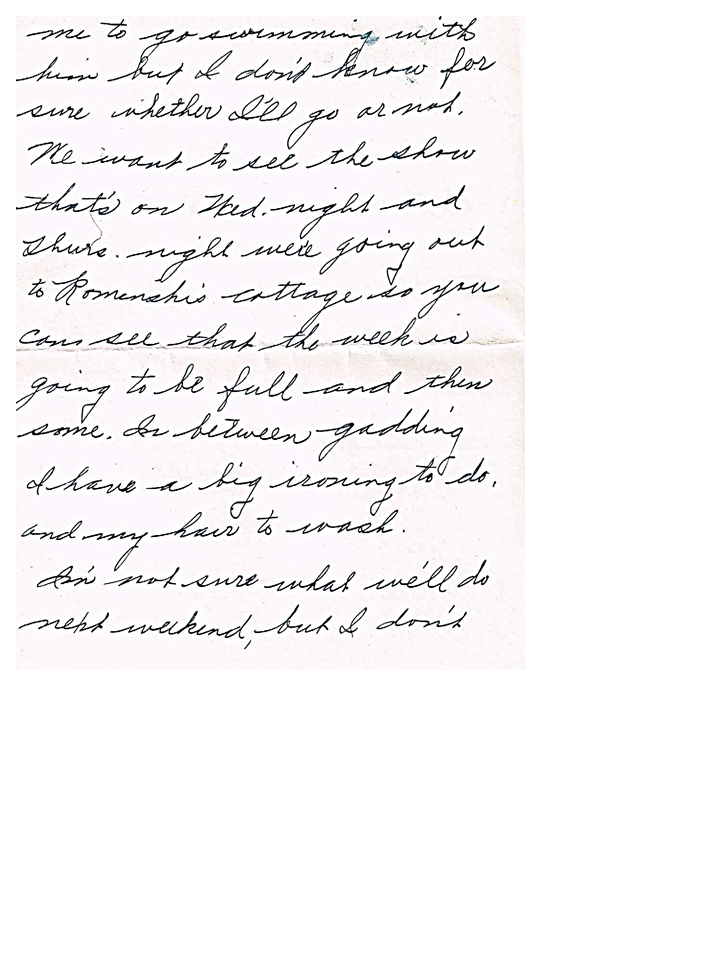 me to go swimming with
him but I don't know for
sure whether I'll go or not.
We want to see the show
that's on Wed. night and
Thurs. night we're going out
to Romenski's cottage so you
can see that the week is
going to be full and then
some. In between gadding
I have a big ironing to do,
and my hair to wash.
I'm not sure what we'll do
next weekend, but I don't